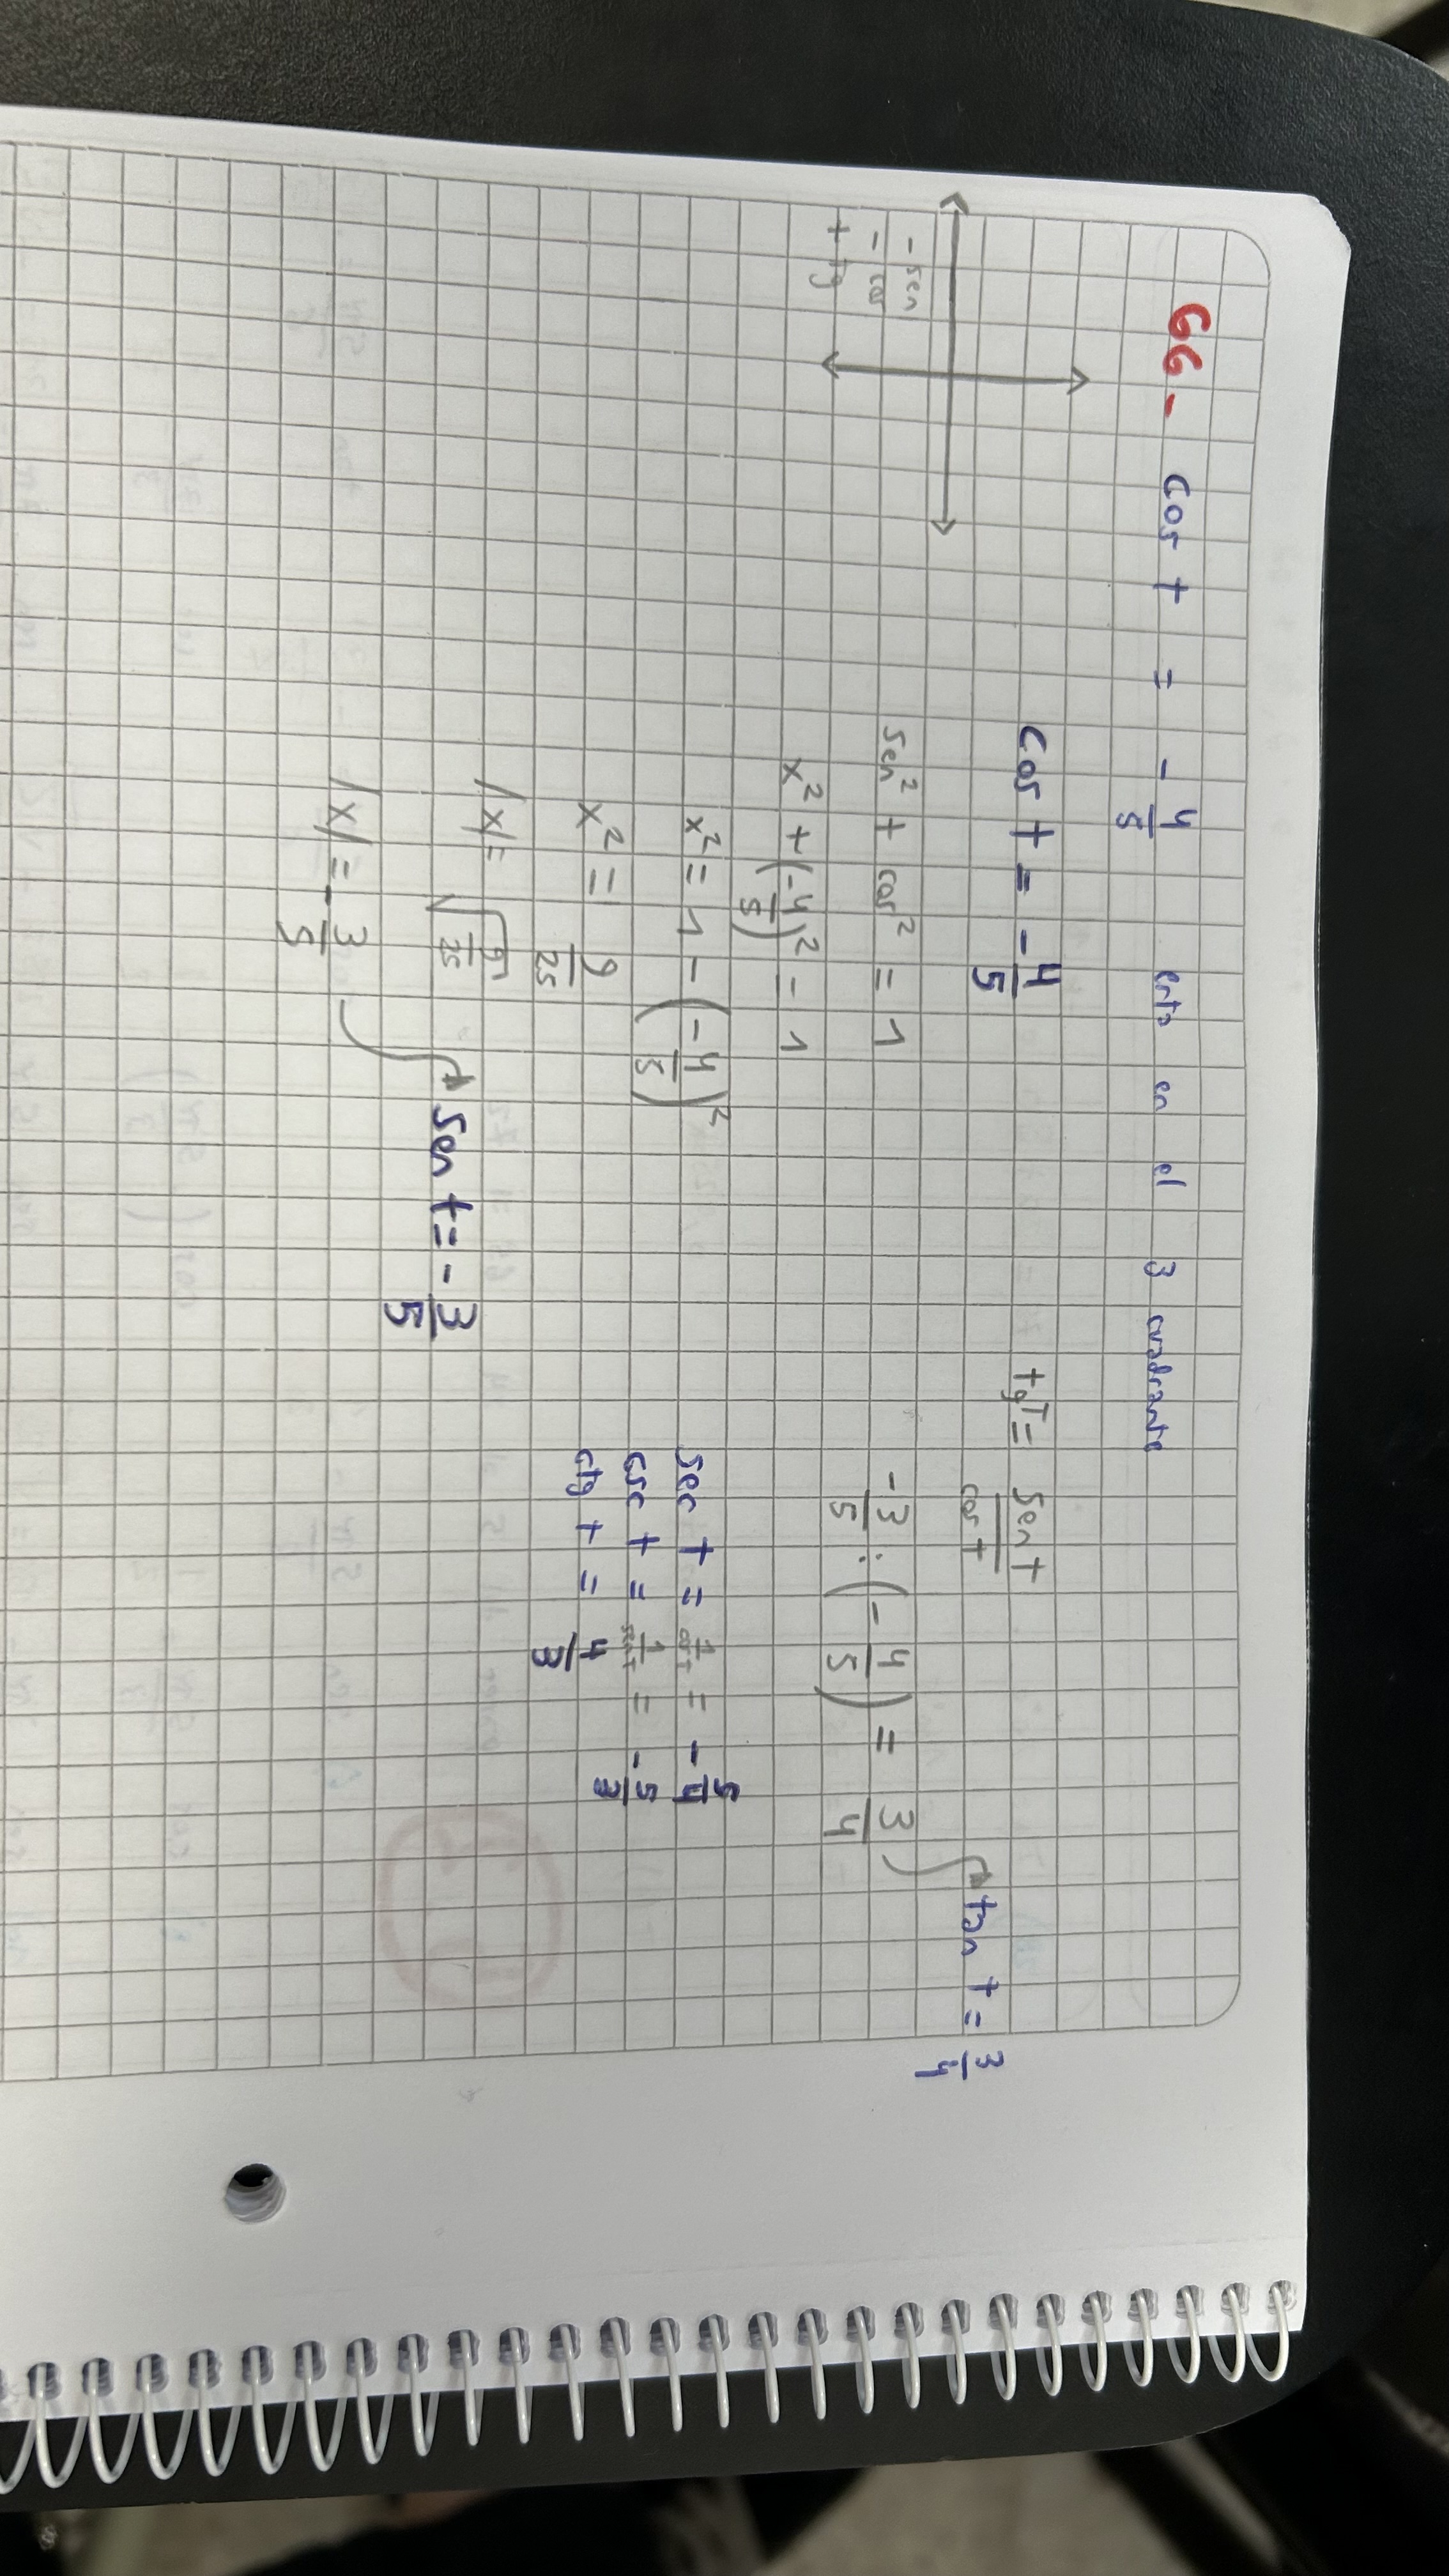 66- Cos t = - 4/5 esta en el 3 cuadrante
- sen
- cos
+ tg
Cos t = - 4/5
Sen² + cos² = 1
x² + (-4/5)² = 1
x² = 1 - (-4/5)²
x² = 9/25
|x| = √9/25
|x| = - 3/5
Sen t = - 3/5
tgT = Sen t / cos t
-3/5 : (-4/5) = 3/4
tan t = 3/4
Sec t = 1/cos t = - 5/4
Csc t = 1/sen t = - 5/3
Ctg t = 4/3